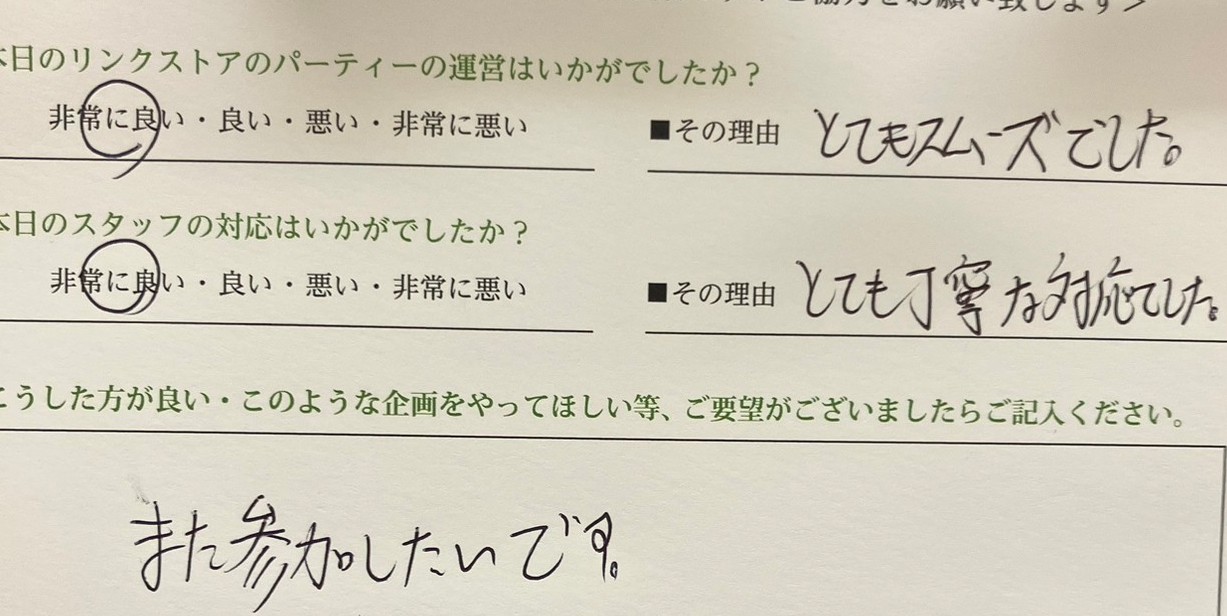 ご協力をお願い致します>
本日のリンクストアのパーティーの運営はいかがでしたか？
非常に良い・良い・悪い・非常に悪い ■その理由 とてもスムーズでした。
本日のスタッフの対応はいかがでしたか？
非常に良い・良い・悪い・非常に悪い ■その理由 とても丁寧な対応でした。
こうした方が良い・このような企画をやってほしい等、ご要望がございましたらご記入ください。
また参加したいです。